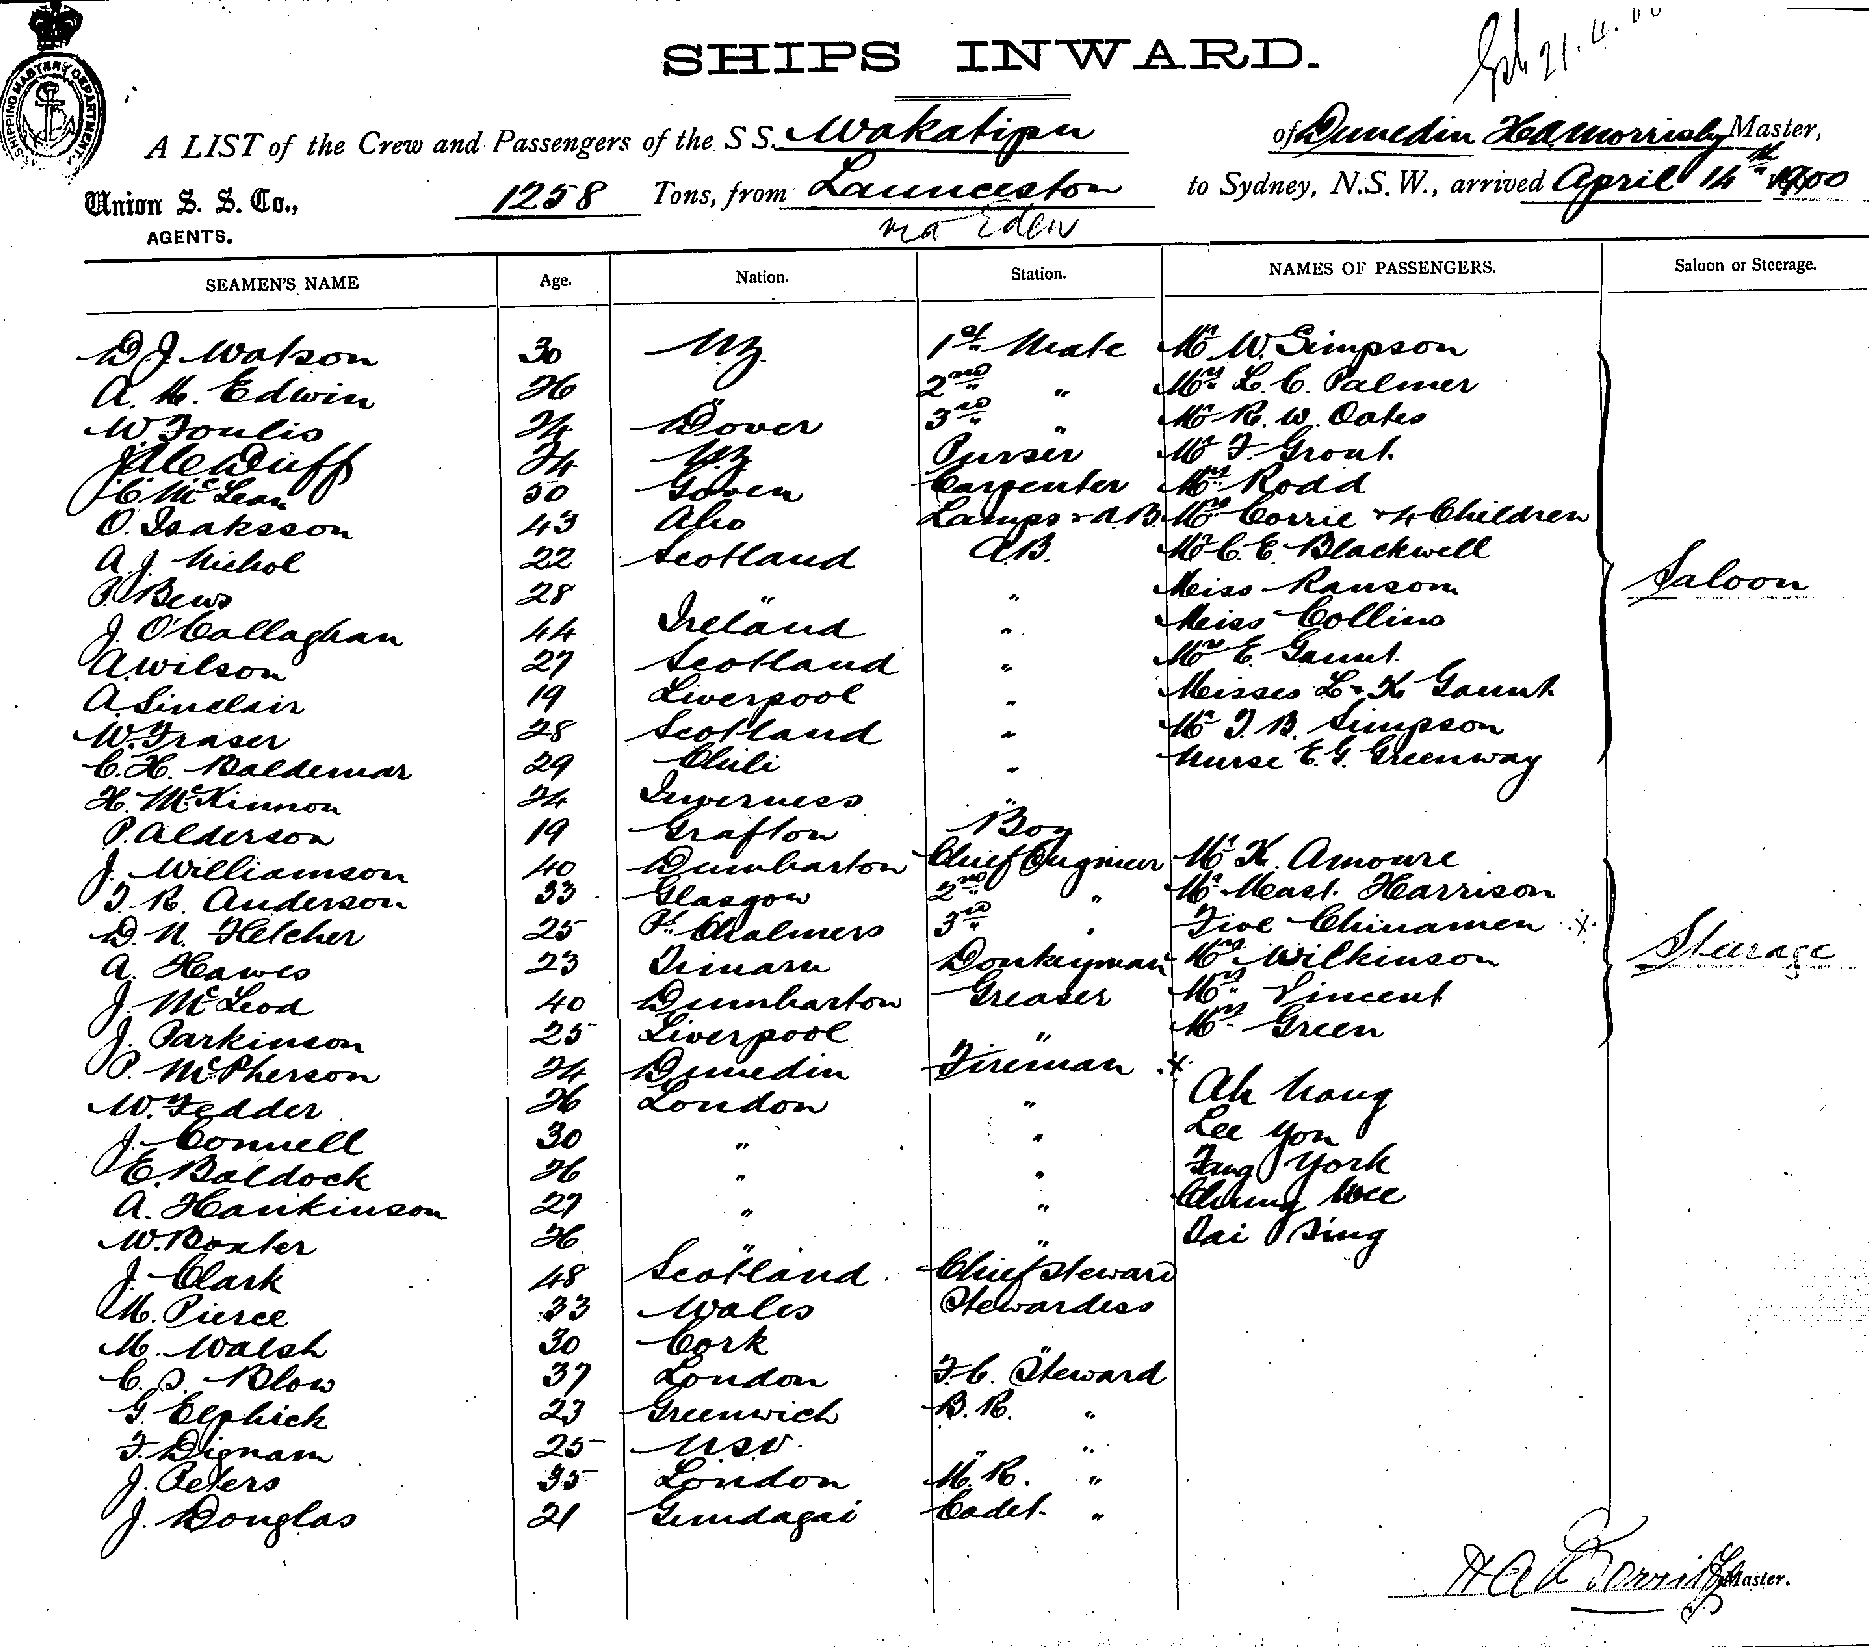 SHIPS INWARD.
A LIST of the Crew and Passengers of the S S. Wakatipu of Dunedin H A Morrisby Master,
Union S. S. Co., AGENTS. 1258 Tons, from Launceston to Sydney, N.S.W., arrived April 14th 1900
via Eden
SEAMEN'S NAME Age. Nation. Station. NAMES OF PASSENGERS. Saloon or Steerage.
D J Watson 30 N.Z. 1st Mate Mr W. Simpson
A. M. Edwin 26 " 2nd " Mrs L. C. Palmer
W Foulis 24 Dover 3rd " Mr R. W. Oates
J McDuff 24 N.Z Purser Mr F Grout
C McLean 50 Goven Carpenter Mrs Rodd
O. Isaksson 43 Abo Lamps & A.B Mrs Corrie & 4 Children
A. J. Nichol 22 Scotland A.B. Mr C. E. Blackwell
P. Bews 28 " " Miss Ransom
J. O'Callaghan 44 Ireland " Miss Collins
A Wilson 27 Scotland " Mrs E. Gaunt
A. Sinclair 19 Liverpool " Misses L & K Gaunt
W. Fraser 28 Scotland " Mr T. B. Simpson
C. H. Baldemar 29 Chili " Nurse E. G. Greenway
Saloon
H. McKinnon 24 Inverness "
P. Alderson 19 Grafton Boy
J. Williamson 40 Dumbarton Chief Engineer Mr K. Amoure
T. R. Anderson 33 Glasgow 2nd " Mr Mast. Harrison
D. N. Fletcher 25 Pt. Chalmers 3rd " Five Chinamen x
A. Hawes 23 Timaru Donkeyman Mrs Wilkinson
J. McLeod 40 Dumbarton Greaser Mrs Vincent
J. Parkinson 25 Liverpool " Mrs Green
Steerage
P. McPherson 24 Dunedin Fireman x Ah Nang
W. Fedder 26 London " Lee Yon
J. Connell 30 " " Fang York
E. Baldock 26 " " Chung Wee
A. Hankinson 27 " " Tai Sing
W. Boxter 26 " "
J. Clark 48 Scotland Chief Steward
M. Pierce 33 Wales Stewardess
M. Walsh 30 Cork "
C. S. Blow 37 London F. C. Steward
G. Elphick 23 Greenwich B. R. "
F. Dignam 25 NSW. " "
J. Peters 35 London M. R. "
J. Douglas 21 Gundagai Cadet "
H A Morrisby Master.
SHIPPING MASTERS DEPARTMENT.